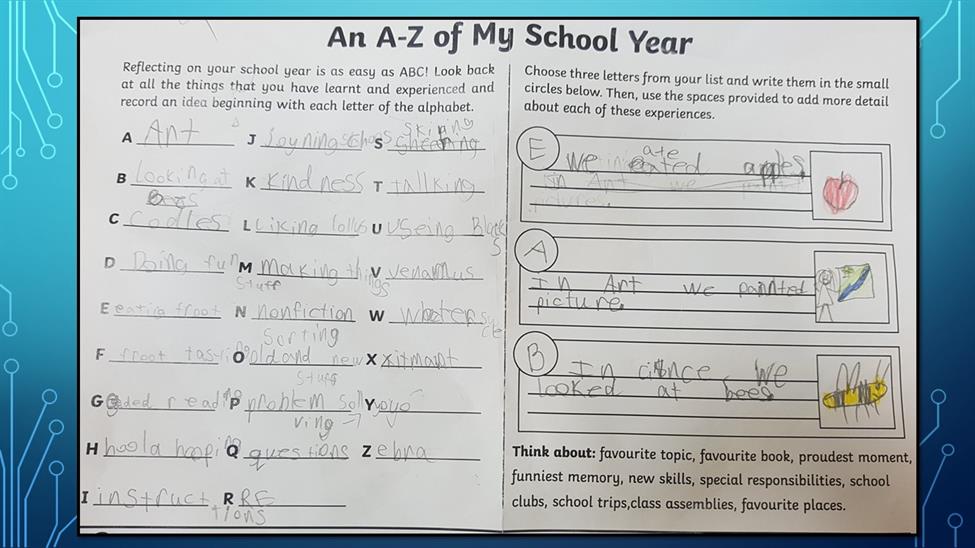 An A-Z of My School Year
Reflecting on your school year is as easy as ABC! Look back
at all the things that you have learnt and experienced and
record an idea beginning with each letter of the alphabet.
A Art
B Looking at
C coodles
D Doing fun
stuff
E eating froot
F froot
G reading
H hoola hooping
I instruct
tions
J Joyning
K Kindness
L Liking lollys
M making things
N nonfiction
O old and new
stuff
P problem soll
ving
Q questions
R RE
S skiping
T tallking
U USeing Block
s
V venamus
W
X xitmant
Y yoyo
Z Zebra
Choose three letters from your list and write them in the small
circles below. Then, use the spaces provided to add more detail
about each of these experiences.
E
we ate apples
A
In Art we painted
picture.
B
In cience we
looked at bees
Think about: favourite topic, favourite book, proudest moment,
funniest memory, new skills, special responsibilities, school
clubs, school trips,class assemblies, favourite places.